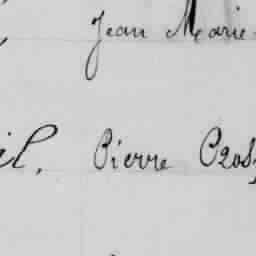 Jean Marie
il. Pierre Cros